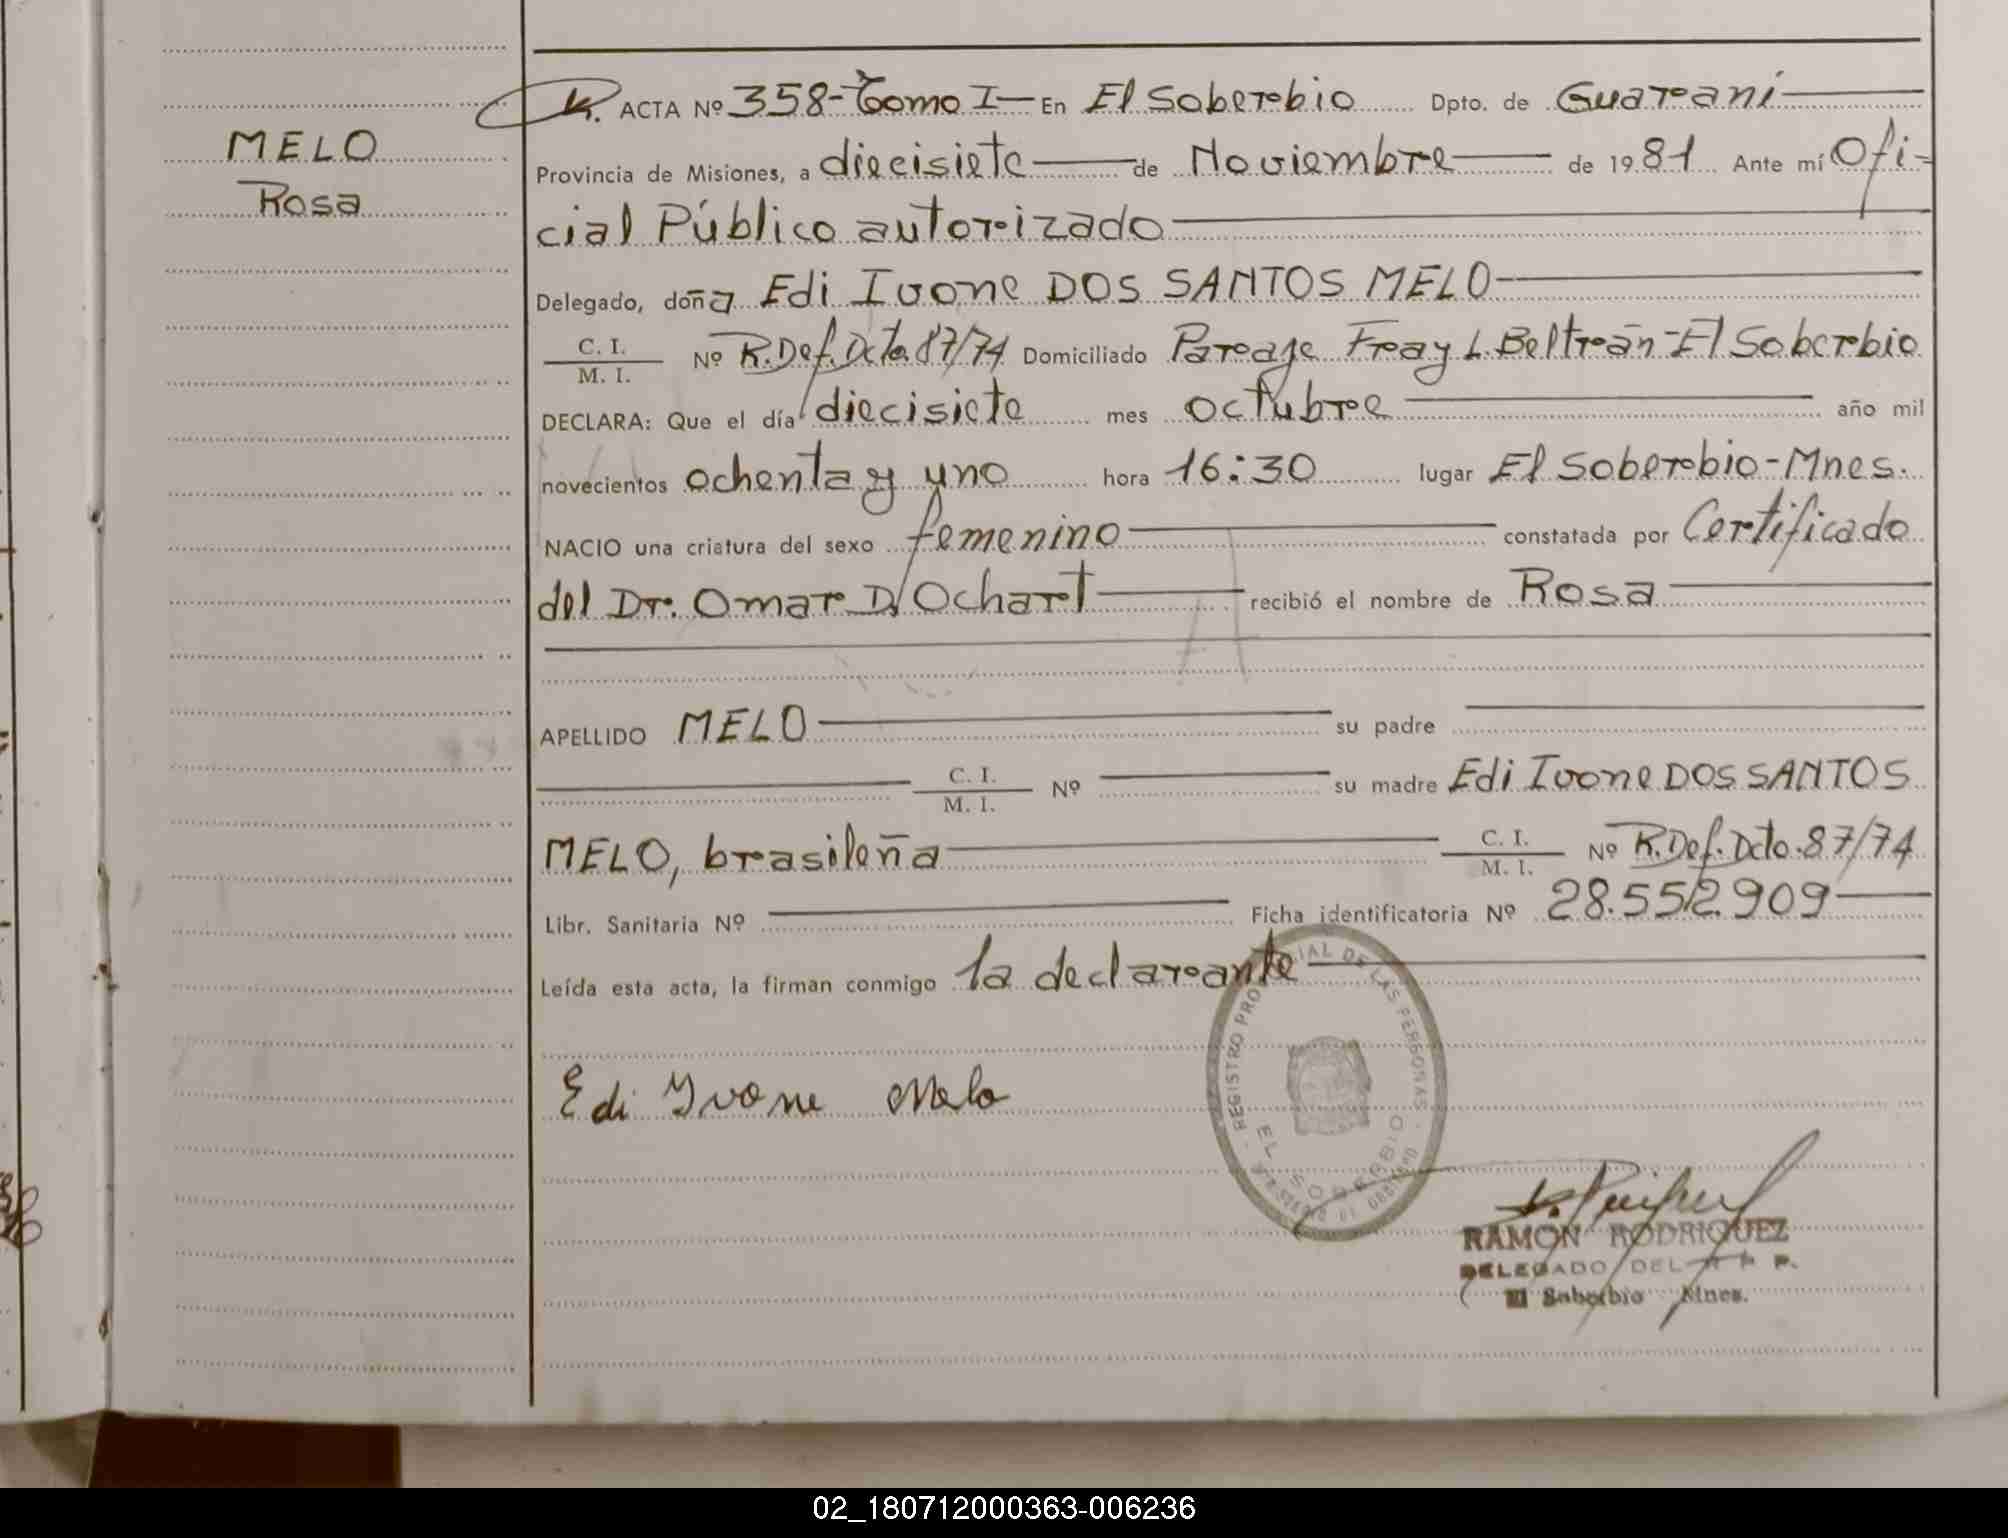 MELO
Rosa
R. ACTA Nº 358-Tomo I— En El Soberbio Dpto. de Guaraní
Provincia de Misiones, a diecisiete de Noviembre de 1981 Ante mí Ofi-
cial Público autorizado
Delegado, doña Edi Ivone DOS SANTOS MELO
C. I.
M. I.
Nº R.Def.Dcto.87/74 Domiciliado Paraje Fray L.Beltrán-El Soberbio
DECLARA: Que el día diecisiete mes octubre año mil
novecientos ochenta y uno hora 16:30 lugar El Soberbio-Mnes.
NACIO una criatura del sexo femenino constatada por Certificado
del Dr. Omar D. Ochart recibió el nombre de Rosa
APELLIDO MELO su padre
C. I.
M. I.
Nº su madre Edi Ivone DOS SANTOS
MELO, brasileña
C. I.
M. I.
Nº R.Def.Dcto.87/74
Libr. Sanitaria Nº Ficha identificatoria Nº 28.552.909
Leída esta acta, la firman conmigo la declarante
REGISTRO PROVINCIAL DE LAS PERSONAS
EL SOBERBIO
Edi Yvone Melo
RAMON RODRIGUEZ
DELEGADO DEL R P P.
El Soberbio Mnes.
02_180712000363-006236